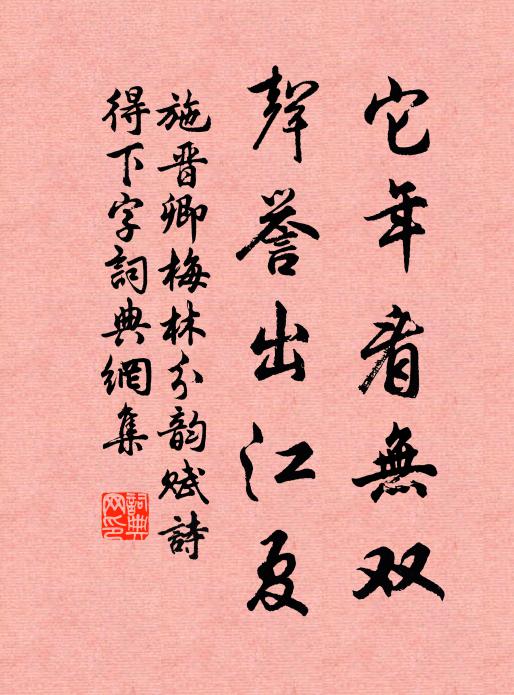 它年看無双
聲譽出江夏
施晋卿梅林分韵賦詩
得下字詞典網集
詞典网印